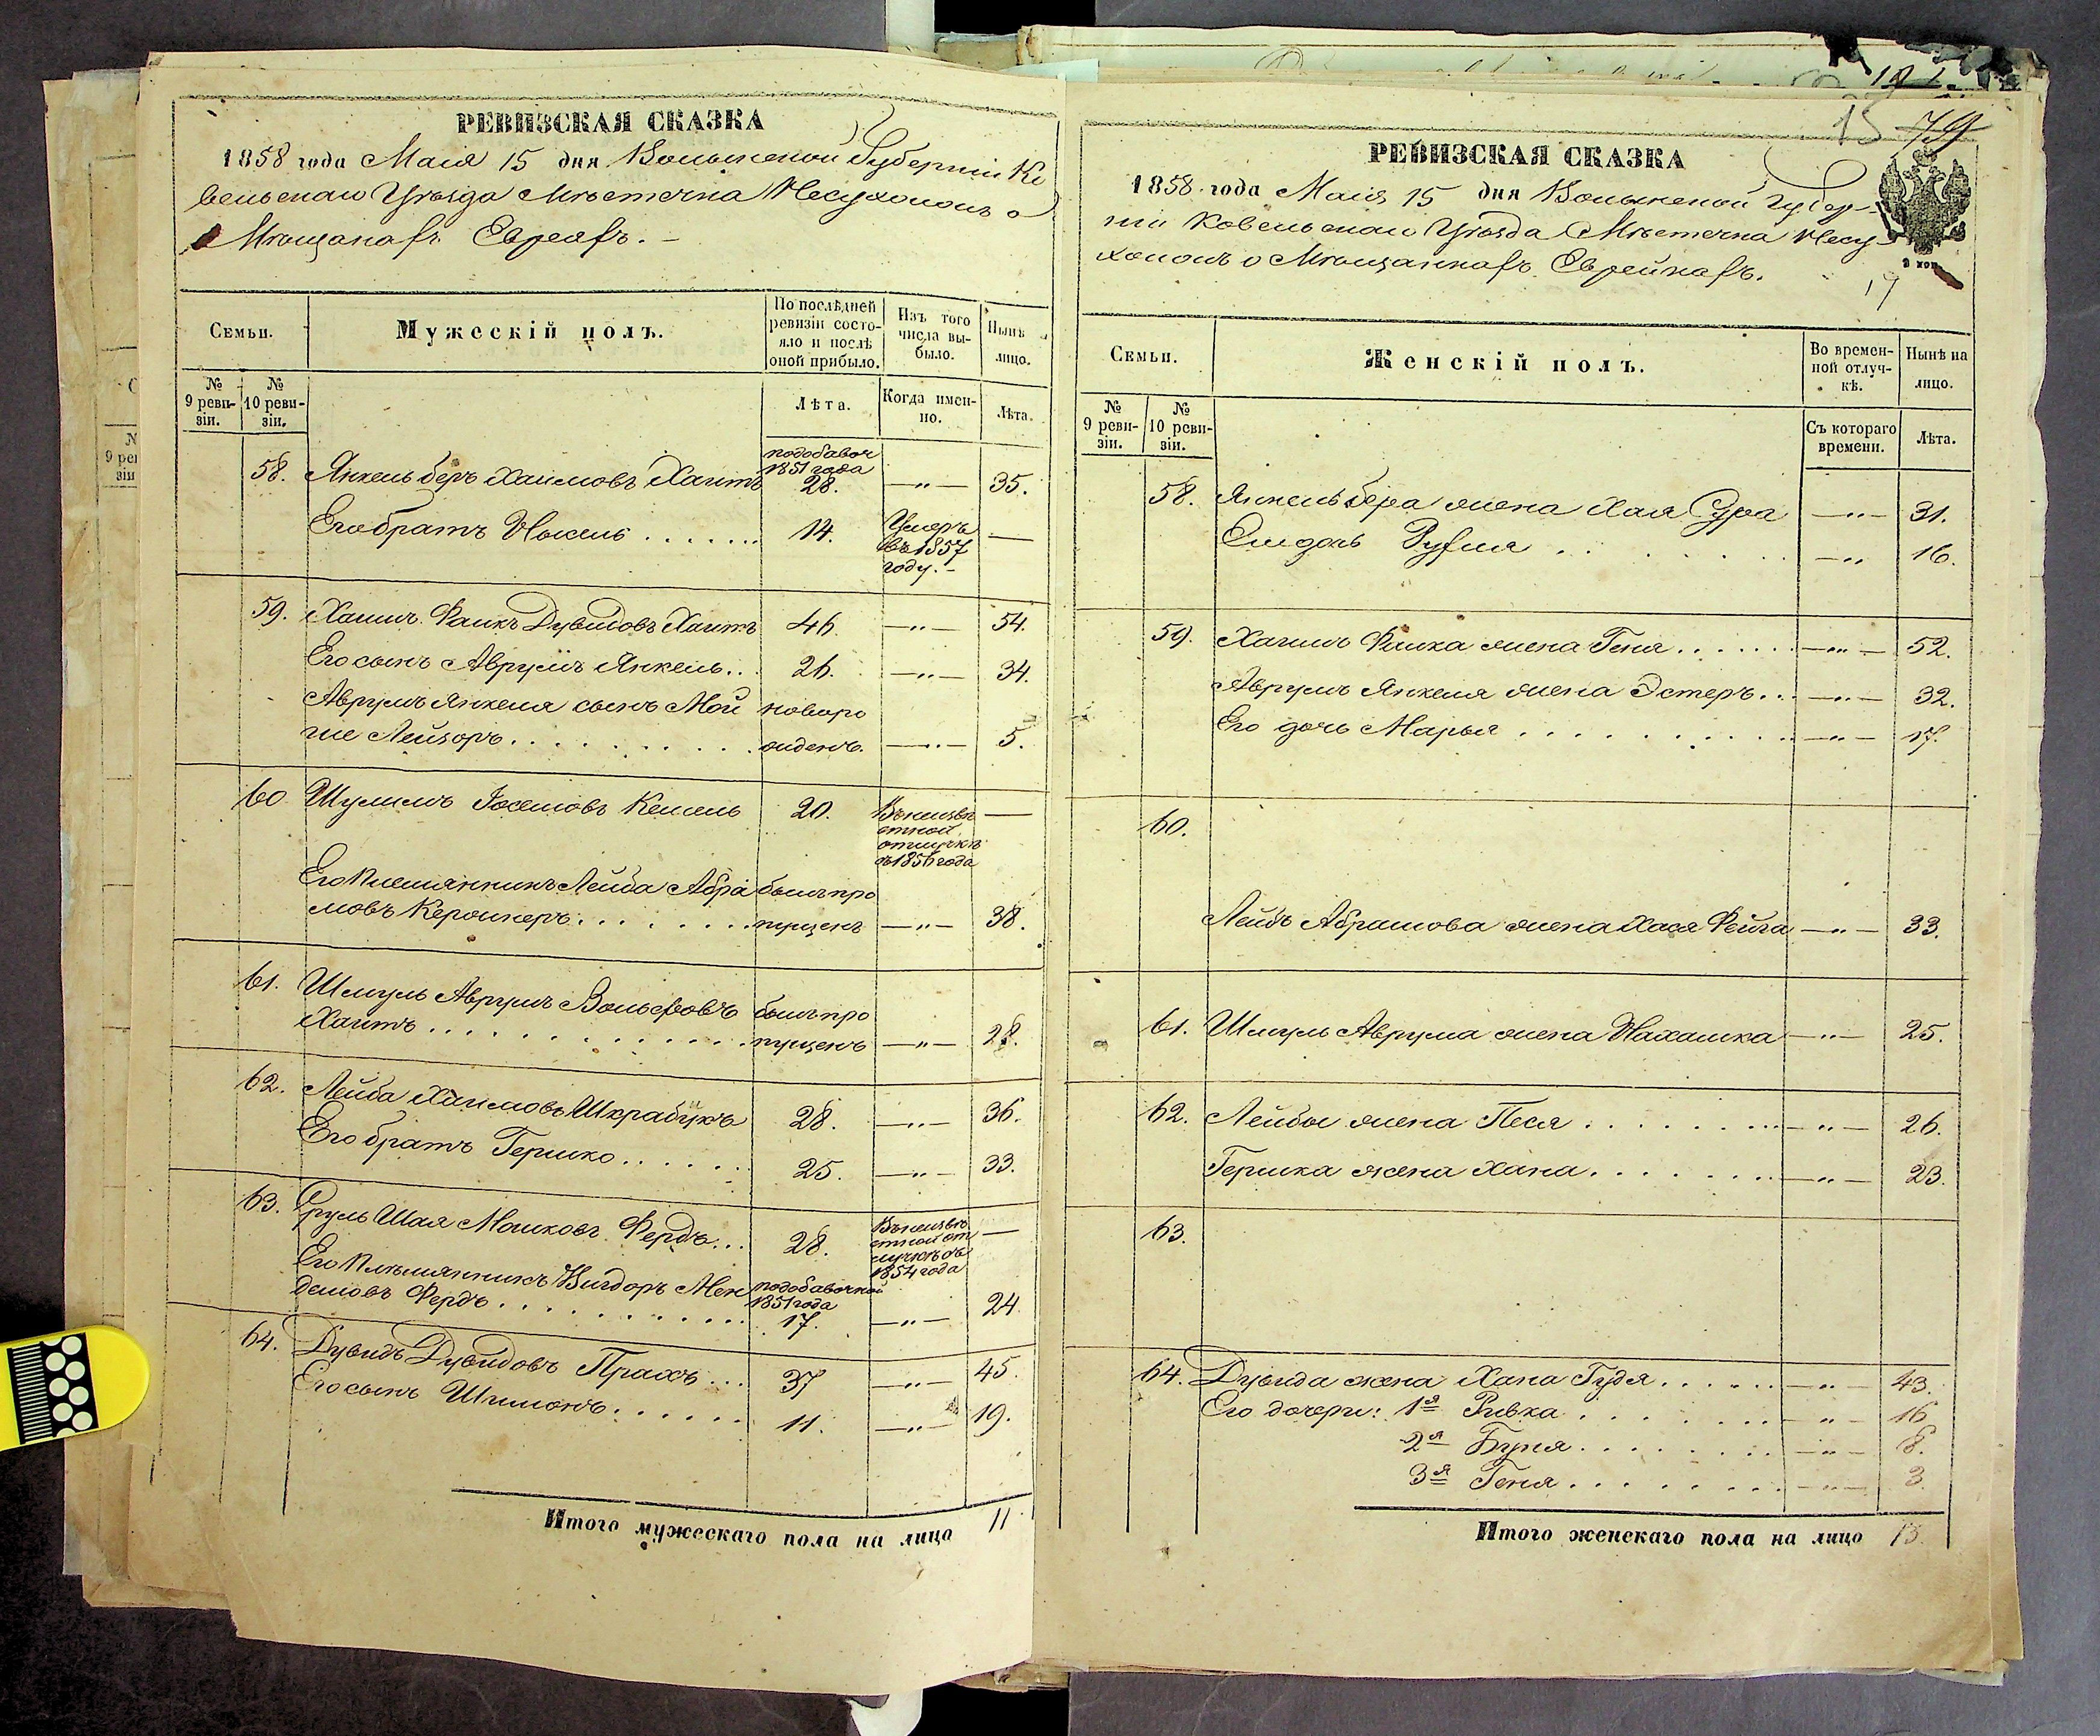 РЕВИЗСКАЯ СКАЗКА
1858 года Маія 15 дня Волынской Губерніи Ко
вельскаго Уѣзда Мѣстечка Несухоижъ о
Мѣщанахъ Евреяхъ. –
Семьи.
Мужескій полъ.
По послѣдней
ревизіи состо-
яло и послѣ
оной прибыло.
Изъ того
числа вы-
было.
Нынѣ
лицо.
№
9 реви-
зіи.
№
10 реви-
зіи.
Лѣта.
Когда имен-
но.
Лѣта.
58. Янкель беръ Хаимовъ Хаитъ
подобавоч
1851 года
28. —〃— 35.
Его братъ 14.
Умеръ
въ 1857
году. –
—
59. Хаимъ Фаикъ Дувидовъ Хаитъ 46. —〃— 54.
Его сынъ Аврумъ Янкель.. 26. —〃— 34.
Аврумъ Янкеля сынъ Мой новоро
ше Лейзоръ. . . . . . . . . . жденъ. —〃— 5.
60. Шулимъ Іосемовъ 20.
Въ неизвѣ
стной
отлучкѣ
съ 1856 года
—
Его Племянникъ Лейба Абра былъ про
мовъ . . . . . . . пущенъ —〃— 38.
61. Шмуль Аврумъ Вольфовъ былъ про
Хаитъ . . . . . . . . . . . . пущенъ —〃— 28.
62. Лейба Хаимовъ Шкрабукъ 28. —〃— 36.
Его братъ Гершко . . . . . 25. —〃— 33.
63. Сруль Шая Мошковъ Фердъ... 28.
Въ неизвѣ
стной от
лучкѣ съ
1854 года
—
Его Племянникъ Вигдоръ Мен подобавочной
делювъ Фердъ . . . . . . . . . 1851 года
17. —〃— 24.
64. Дувидъ Дувидовъ Прахъ... 37 —〃— 45.
Его сынъ Шимонъ. . . . . . 11. —〃— 19.
Итого мужескаго пола на лицо 11
15 79
РЕВИЗСКАЯ СКАЗКА
1858 года Маія 15 дня Волынской Губер-
ніи Ковельскаго Уѣзда Мѣстечка Несу-
хоижъ о Мѣщанкахъ Еврейкахъ.
Семьи.
Женскій полъ.
Во времен-
ной отлуч-
кѣ.
Нынѣ на
лицо.
№
9 реви-
зіи.
№
10 реви-
зіи.
Съ котораго
времени.
Лѣта.
58. Янкель бера жена Хая Сура —〃— 31.
Его дочь Рухля . . . . . . . —〃 16.
59. Хаимъ Фаика жена Геня . . . . . . —〃— 52.
Аврумъ Янкеля жена Эстеръ... —〃— 32.
Его дочь Марья . . . . . . . . . . . —〃— 17.
60.
Лейбъ Абрамова жена Хася Фейга —〃— 33.
61. Шмуль Аврума жена Нахамка —〃— 25.
62. Лейбы жена Песя . . . . . . . . . —〃— 26.
Гершка жена Хана . . . . . . . . —〃— 23.
63.
64. Дувида жена Хана Гудя . . . . . . —〃— 43.
Его дочери: 1я Ривка . . . . . . . . —〃— 16
2я Буня . . . . . . . . —〃— 8.
3я Геня . . . . . . . . —〃— 3.
Итого женскаго пола на лицо 13.